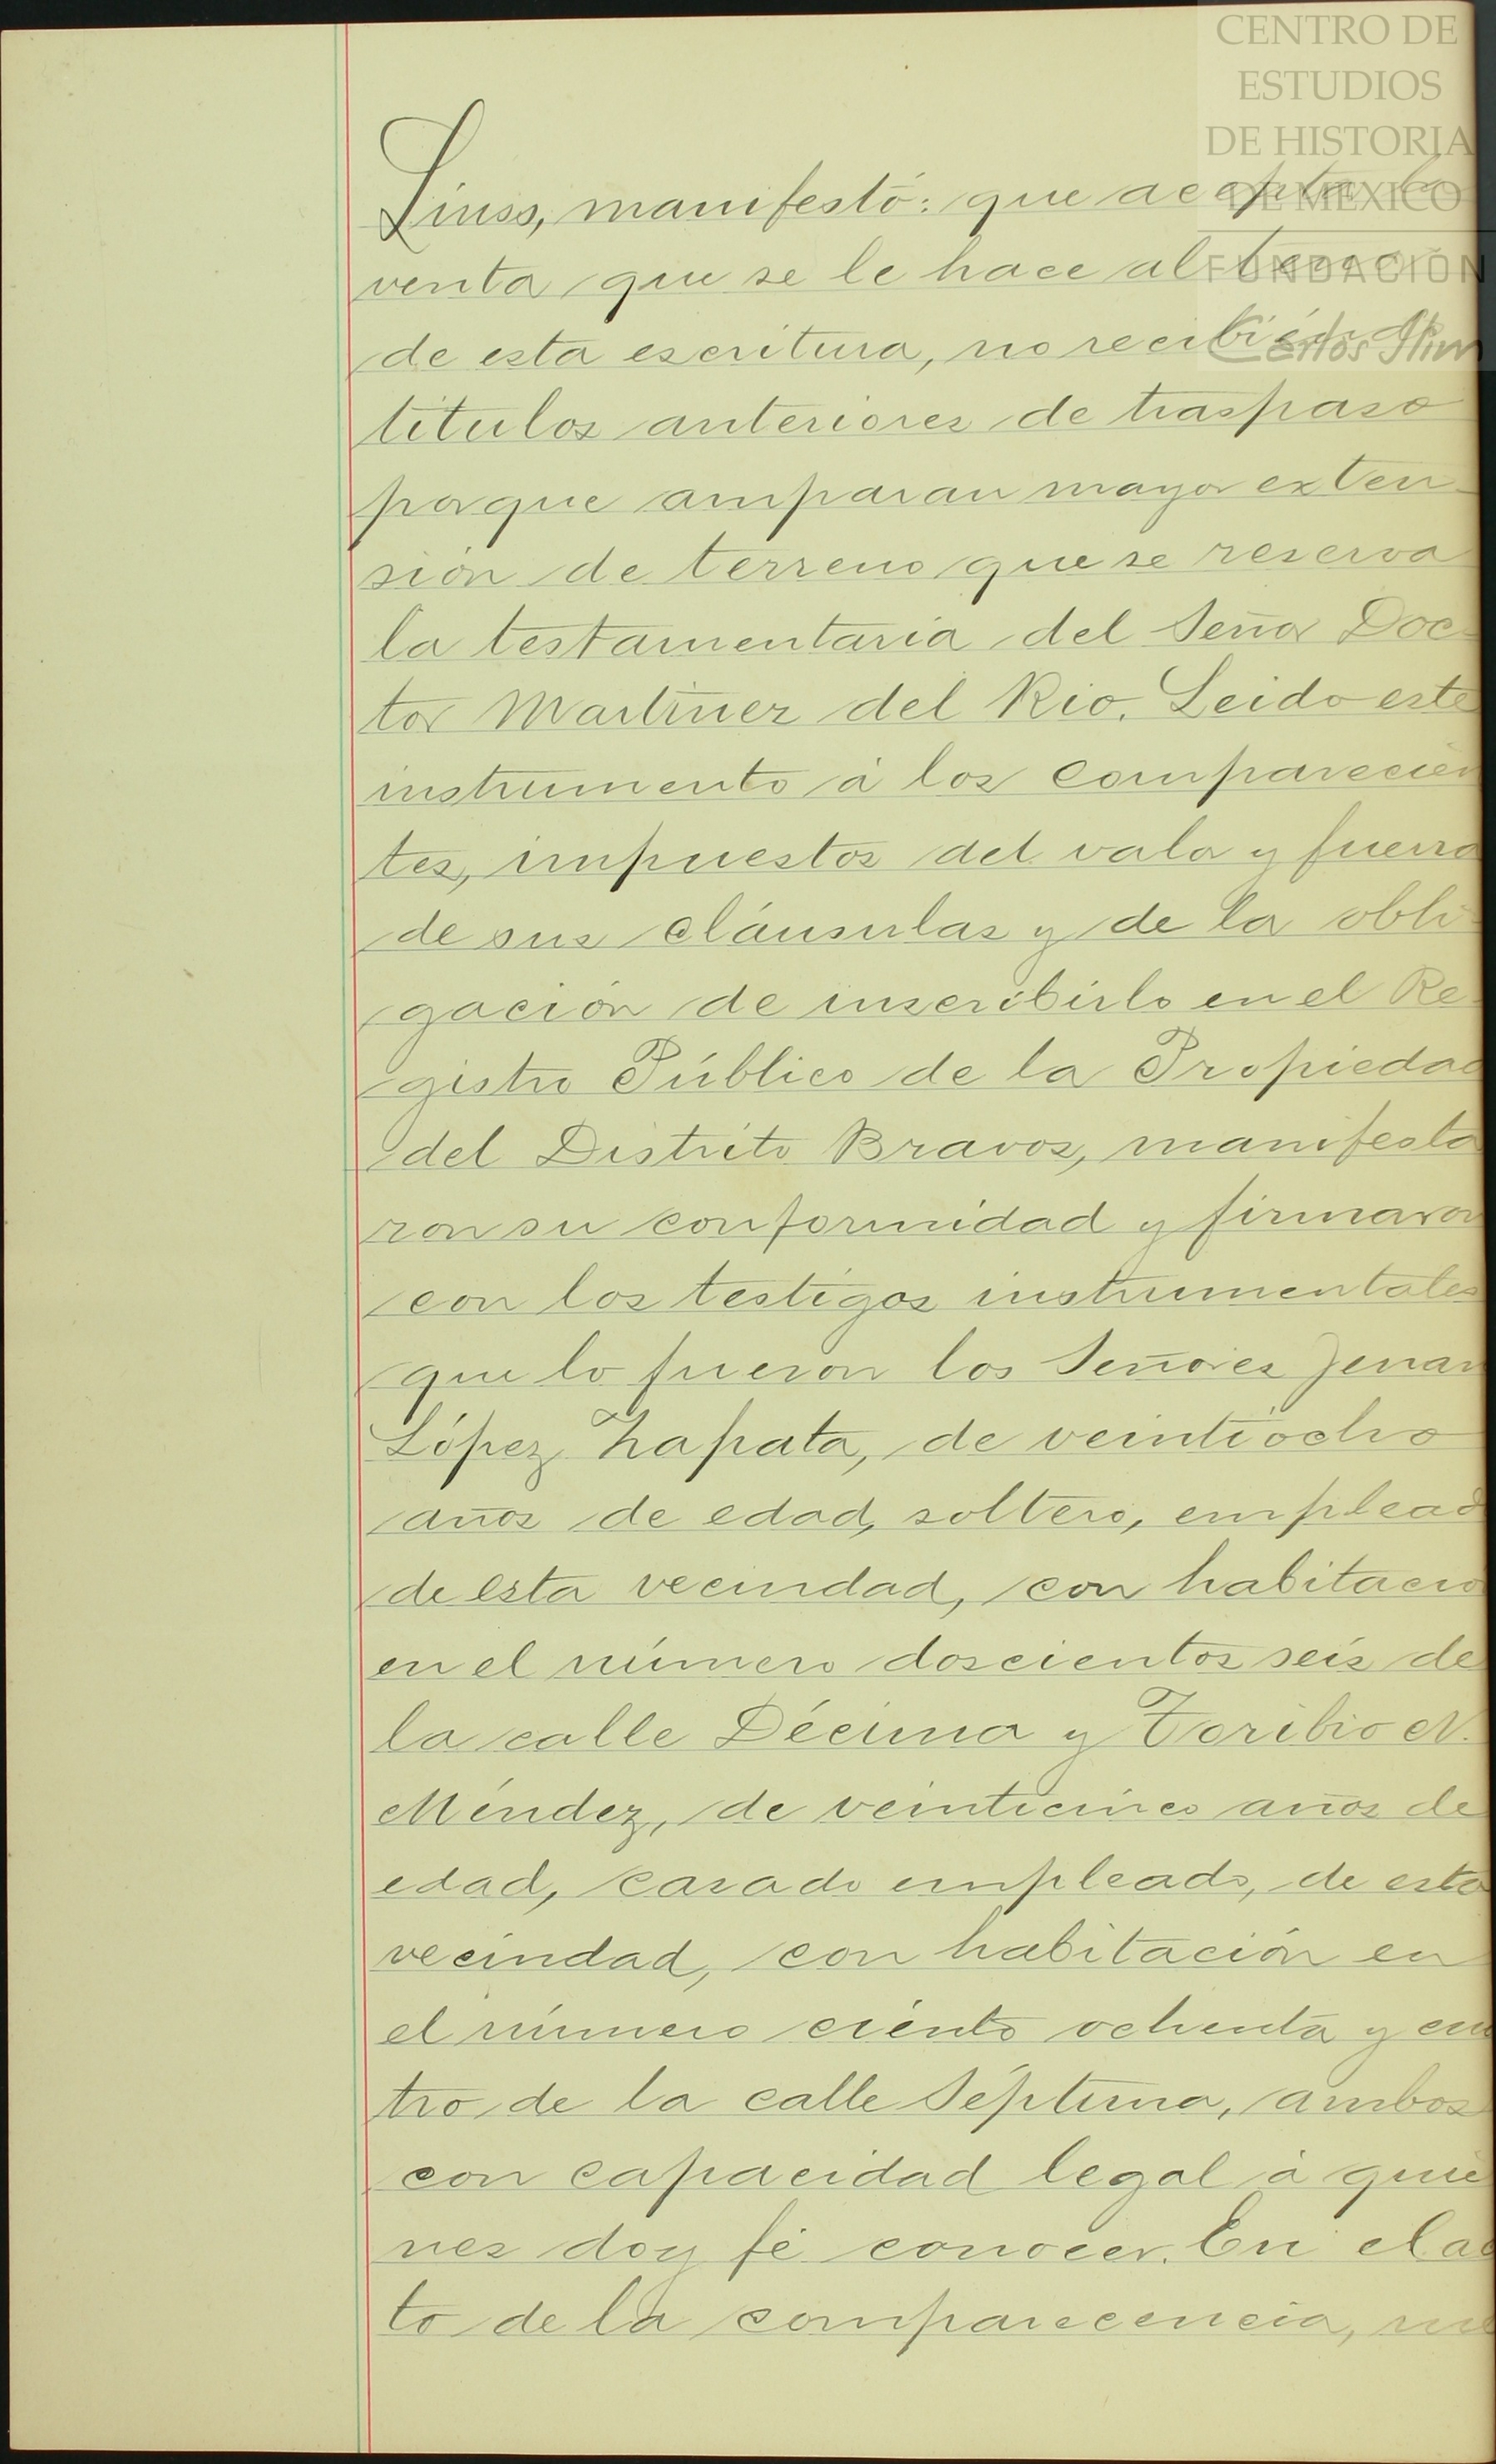 CENTRO DE
ESTUDIOS
DE HISTORIA
DE MEXICO
FUNDACIÓN
Carlos Slim
Linss, manifestó: que acepta la
venta que se le hace al tenor
de esta escritura, no recibiendo
titulos anteriores de traspaso
porque amparan mayor exten-
sión de terreno que se reserva
la testamentaria del Señor Doc-
tor Martinez del Rio. Leido este
instrumento á los comparecien
tes, impuestos del valor y fuerza
de sus cláusulas y de la obli-
gación de inscribirlo en el Re-
gistro Público de la Propiedad
del Distrito Bravos, manifesta
ron su conformidad y firmaron
con los testigos instrumentales
que lo fueron los Señores Jenar
López Zapata, de veintiocho
años de edad, soltero, emplead
de esta vecindad, con habitacio
en el número doscientos seis de
la calle Décima y Toribio N.
Méndez, de veinticinco años de
edad, casado empleado, de esta
vecindad, con habitación en
el número ciento ochenta y cua
tro de la calle Séptima, ambos
con capacidad legal á quie
nes doy fé conocer. En el ac
to de la comparecencia,